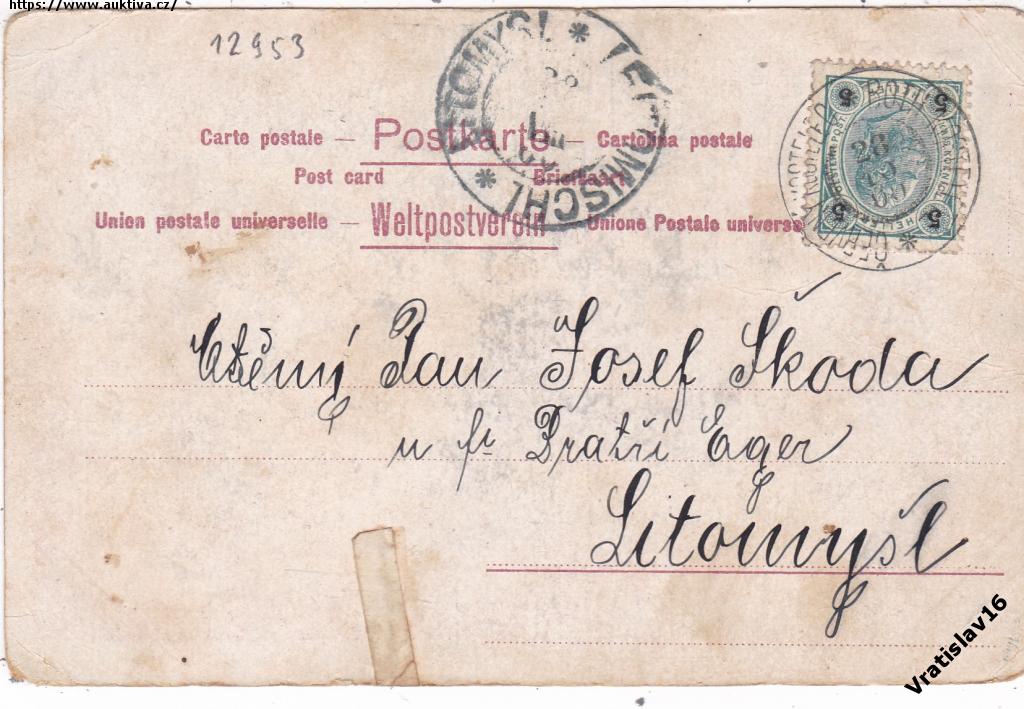 https://www.auktiva.cz/
12953
LITOMYŠL * LEITOMISCHL *
Carte postale — Postkarte — Cartolina postale
Post card Briefkaart
Union postale universelle — Weltpostverein — Unione Postale universa
5 5
5 5
HELLER
Ctěný Pan Josef Škoda
u fi Bratří Eger
Litomyšl
Vratislav16